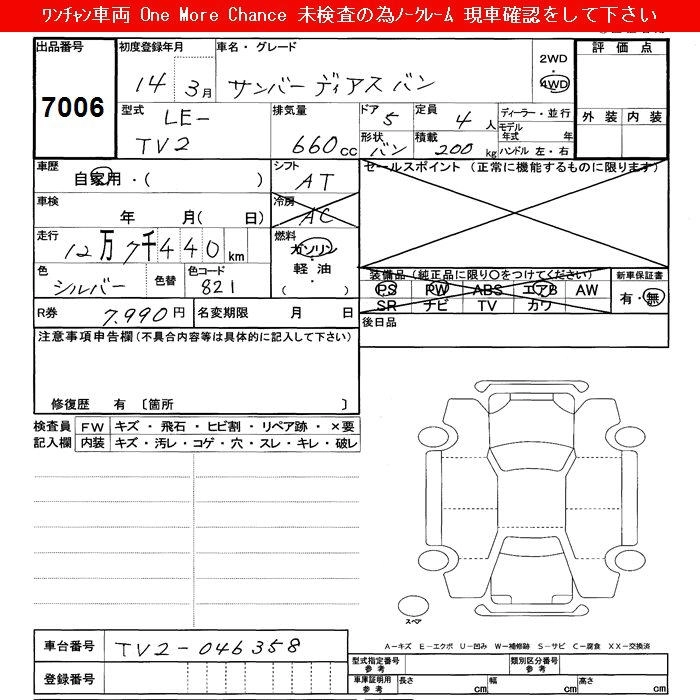 ワンチャン車両 One More Chance 未検査の為ノークレーム 現車確認をして下さい
出品番号 初度登録年月 車名・グレード 評価点
7006 14 3月 サンバー ディアス バン 2WD
4WD
型式 LE- 排気量 ドア 5 定員 4人 ディーラー・並行 外装 内装
モデル年式 年
TV2 660cc 形状 バン 積載 200kg ハンドル 左・右
車歴 自家用・( ) シフト AT セールスポイント (正常に機能するものに限ります)
車検 年 月( 日) 冷房 AC
走行 12万7千440km 燃料 ガソリン・軽油・( )
色 シルバー 色替 色コード 821
装備品(純正品に限り○をつけてください) 新車保証書
PS PW ABS エアB AW 有・無
SR ナビ TV カワ
R券 7.990円 名変期限 月 日 後日品
注意事項申告欄(不具合内容等は具体的に記入して下さい)
修復歴 有 〔箇所 〕
検査員 FW キズ・飛石・ヒビ割・リペア跡・×要
記入欄 内装 キズ・汚レ・コゲ・穴・スレ・キレ・破レ
スペア
A-キズ E-エクボ U-凹み W-補修跡 S-サビ C-腐食 XX-交換済
車台番号 TV2-046358
型式指定番号 参考 類別区分番号 参考
登録番号
車庫証明用 参考 長さ cm 幅 cm 高さ cm